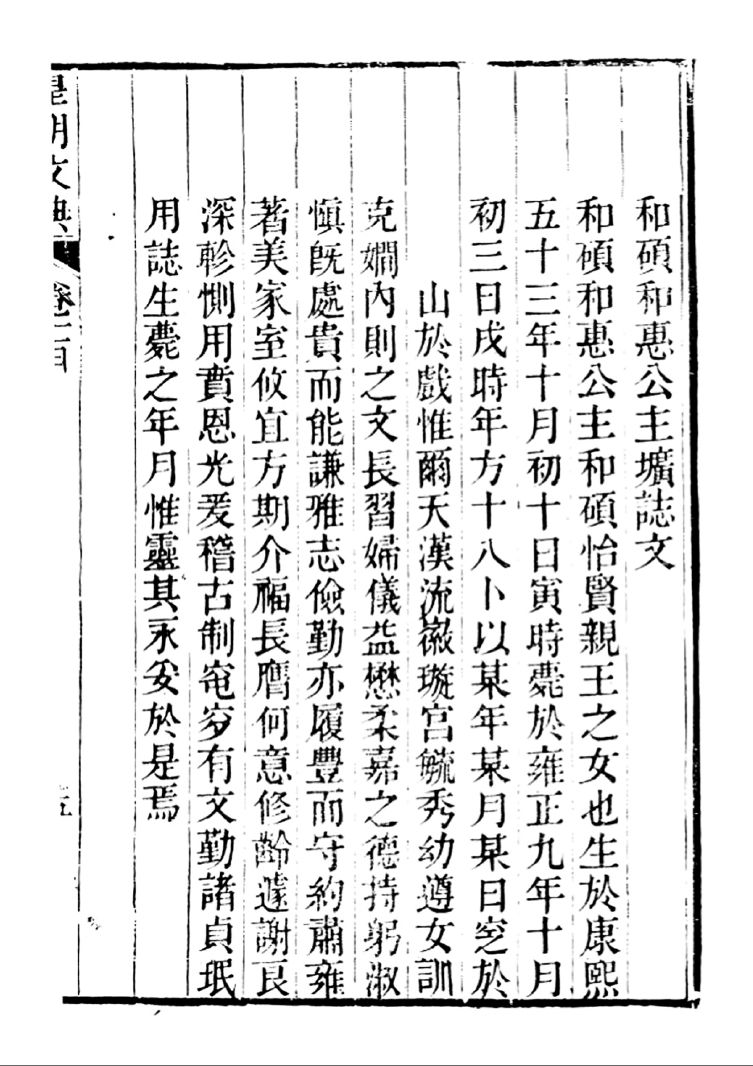 和碩和惠公主壙誌文
和碩和惠公主和碩怡賢親王之女也生於康熙
五十三年十月初十日寅時薨於雍正九年十月
初三日戌時年方十八卜以某年某月某日窆於
山於戲惟爾天漢流徽璇宮毓秀幼遵女訓
克嫺內則之文長習婦儀益懋柔嘉之德持躬淑
愼旣處貴而能謙雅志儉勤亦履豐而守約肅雍
著美家室攸宜方期介福長膺何意修齡遽謝良
深軫惻用賁恩光爰稽古制窀穸有文勒諸貞珉
用誌生薨之年月惟靈其永安於是焉
皇朝文典
卷一百
五